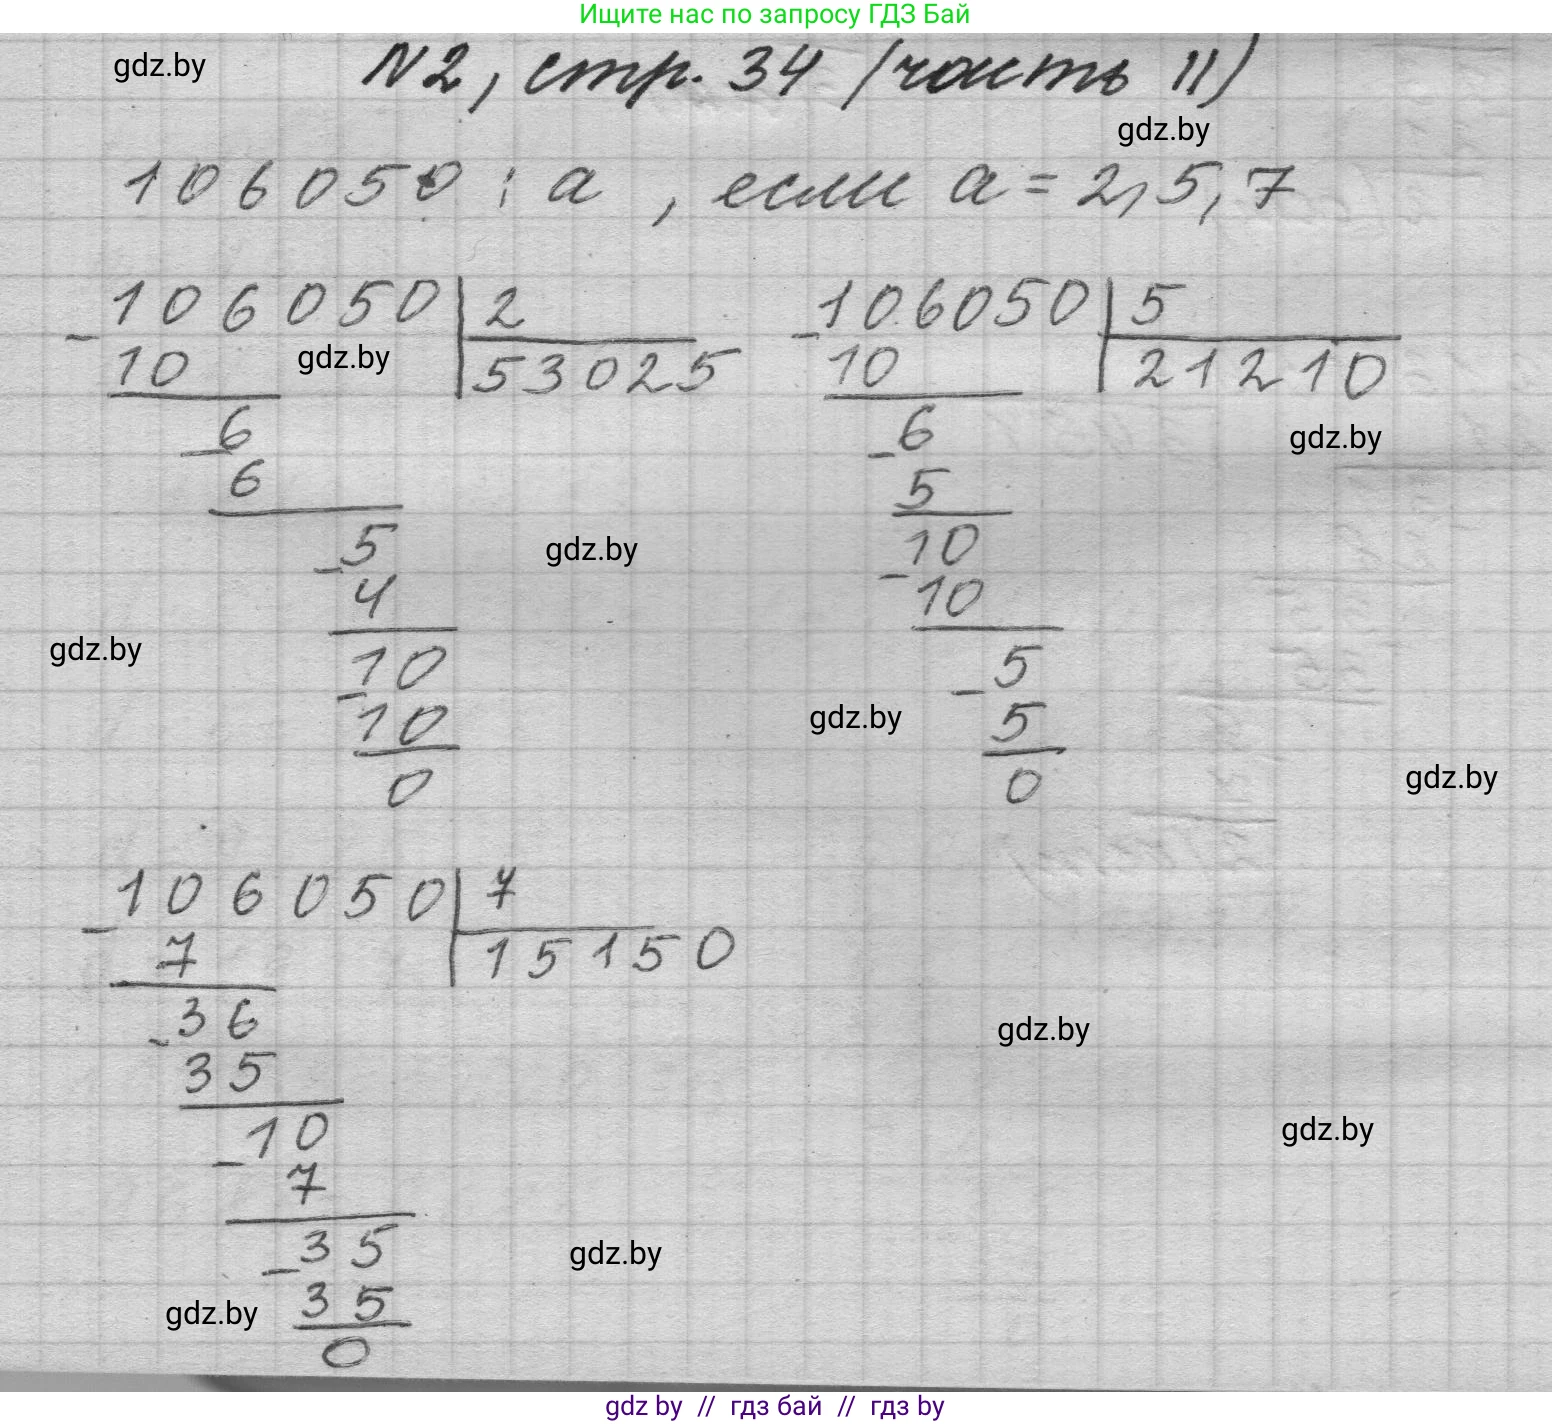 Ищите нас по запросу ГДЗ Бай
gdz.by
N2, стр. 34 (часть II)
gdz.by
106050 : а , если а = 2, 5, 7
106050 | 2
- 10
53025
gdz.by
6
- 6
5
- 4
10
- 10
0
106050 | 5
- 10
21210
gdz.by
6
- 5
10
- 10
5
- 5
0
gdz.by
gdz.by
gdz.by
gdz.by
106050 | 7
- 7
15150
36
- 35
10
- 7
35
- 35
0
gdz.by
gdz.by
gdz.by
gdz.by
gdz by // гдз бай // gdz by